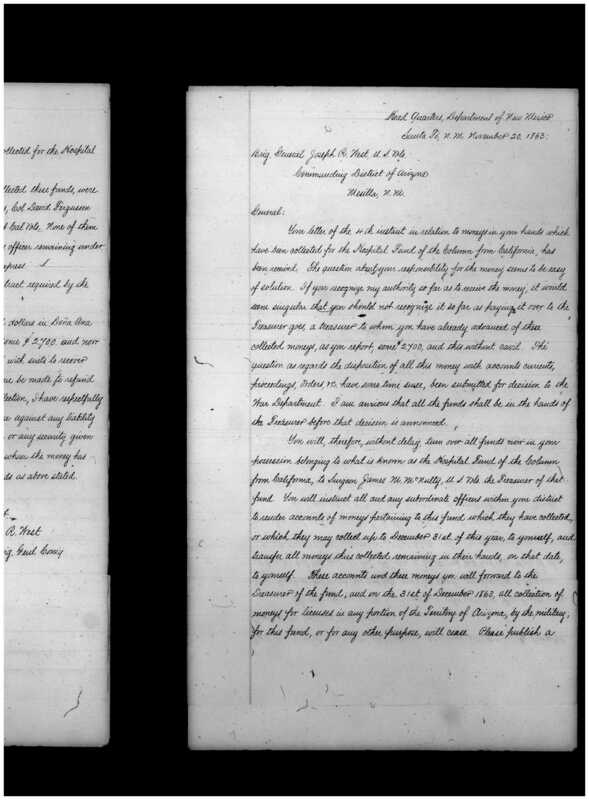 ollected for the Hospital
llected these funds, were
, Col David Fergusson
t Cal Vols. None of them
officer remaining under
xpress
tract required by the
dollars in Doña Ana
ome $2,700. and now
with suits to recover
me be made to refund
lection, I have respectfully
e against any liability
or any security given
whom the money has
ds as above stated.
R. West
ig. Genl Comg
Head Quarters, Department of New Mexico
Santa Fé, N.M. November 20, 1863.
Brig General Joseph R. West, U.S. Vols.
Commanding District of Arizona
Mesilla, N.M.
General:
Your letter of the 4th instant in relation to moneys in your hands which
have been collected for the Hospital Fund of the Column from California, has
been received. The question about your responsibility for the money seems to be easy
of solution. If you recognize my authority so far as to receive the money, it would
seem singular that you should not recognize it so far as paying it over to the
Treasurer goes, a treasurer to whom you have already advanced of these
collected moneys, as you report, some $2,700, and this without cavil. The
question as regards the disposition of all this money with accounts currents,
proceedings, orders, &c. have some time since, been submitted for decision to the
War Department. I am anxious that all the funds shall be in the hands of
the Treasurer before that decision is announced.
You will, therefore, without delay, turn over all funds now in your
possession belonging to what is known as the Hospital Fund of the Column
from California, to Surgeon James M. McNulty, U.S. Vols. the Treasurer of that
fund. You will instruct all and any subordinate officers within your district
to render accounts of moneys pertaining to this fund which they have collected,
or which they may collect up to December 31st of this year, to yourself, and
transfer all moneys thus collected remaining in their hands, on that date,
to yourself. These accounts and these moneys you will forward to the
Treasurer of the fund, and on the 31st of December 1863, all collection of
moneys for licenses in any portion of the Territory of Arizona, by the military,
for this fund, or for any other purpose, will cease. Please publish a